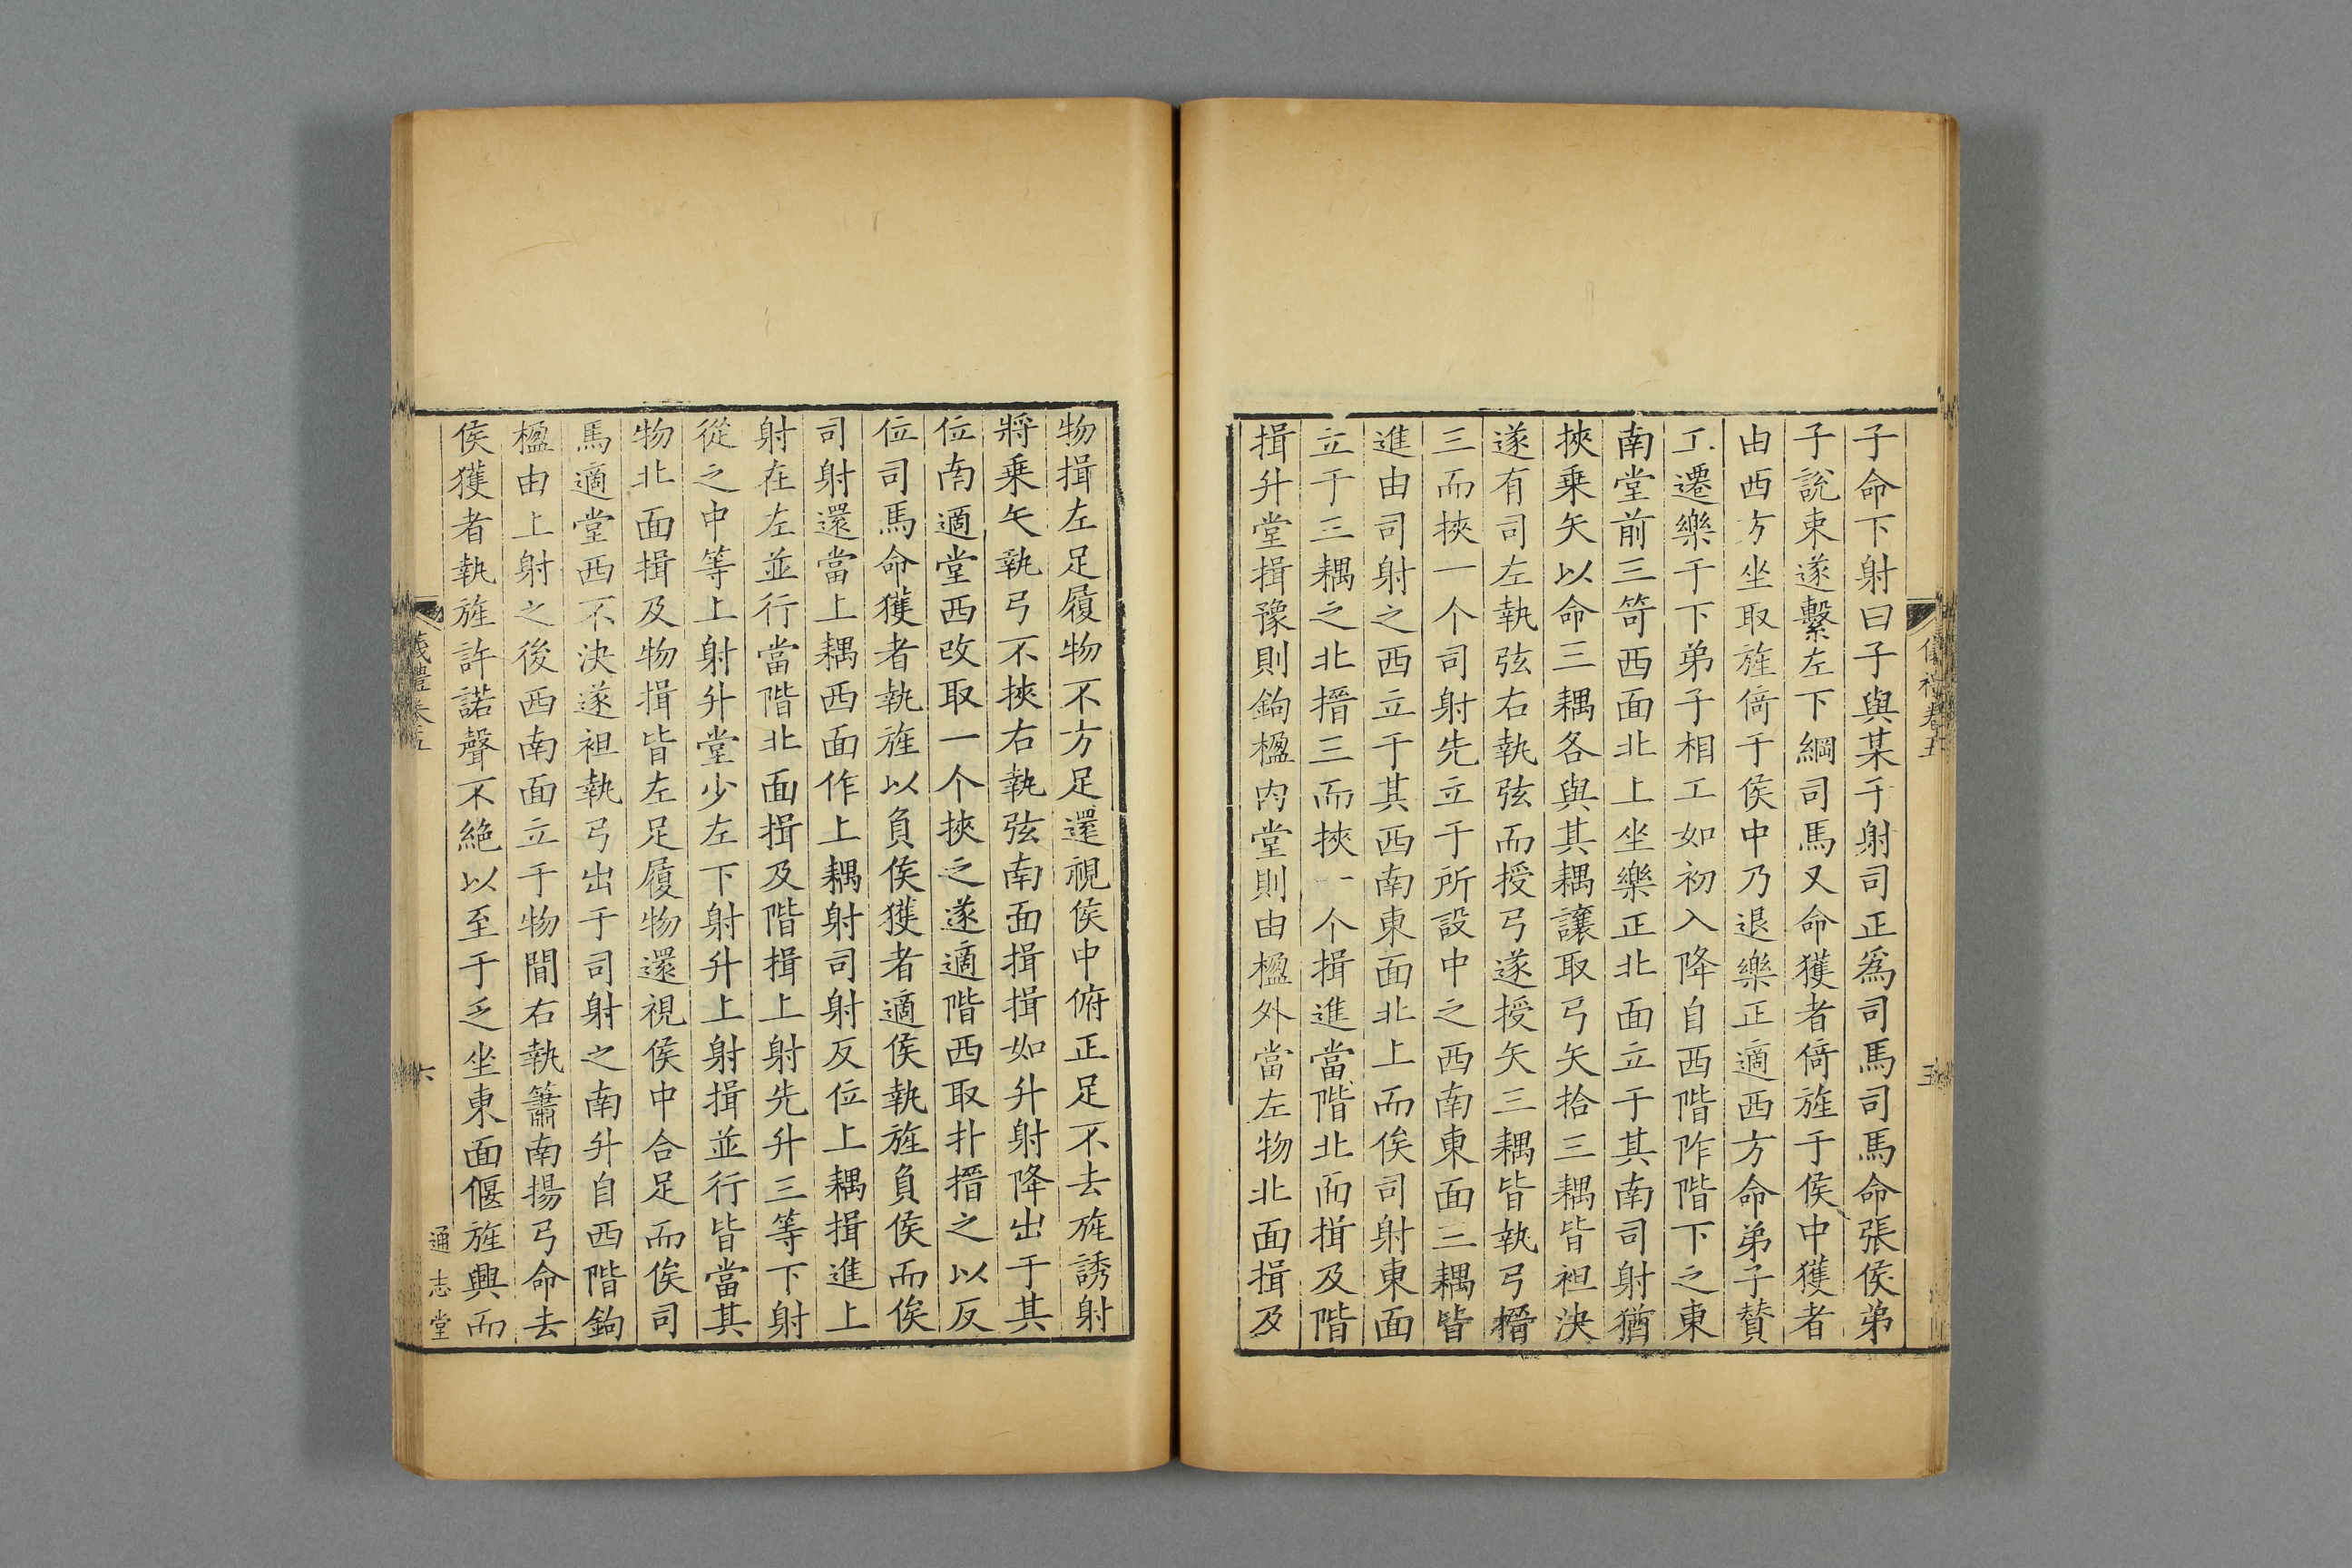 儀禮卷五
五
子命下射曰子與某子射司正爲司馬司馬命張侯弟
子說束遂繫左下綱司馬又命獲者倚旌于侯中獲者
由西方坐取旌倚于侯中乃退樂正適西方命弟子贊
工遷樂于下弟子相工如初入降自西階阼階下之東
南堂前三笴西面北上坐樂正北面立于其南司射猶
挾乗矢以命三耦各與其耦讓取弓矢拾三耦皆袒決
遂有司左執弣右執弦而授弓遂授矢三耦皆執弓搢
三而挾一个司射先立于所設中之西南東面三耦皆
進由司射之西立于其西南東面北上而俟司射東面
立于三耦之北搢三而挾一个揖進當階北面揖及階
揖升堂揖豫則鉤楹内堂則由楹外當左物北面揖及
物揖左足履物不方足還視侯中俯正足不去旌誘射
將乗矢執弓不挾右執弦南面揖揖如升射降出于其
位南適堂西改取一个挾之遂適階西取扑搢之以反
位司馬命獲者執旌以負侯獲者適侯執旌負侯而俟
司射還當上耦西面作上耦射司射反位上耦揖進上
射在左並行當階北面揖及階揖上射先升三等下射
從之中等上射升堂少左下射升上射揖並行皆當其
物北面揖及物揖皆左足履物還視侯中合足而俟司
馬適堂西不決遂袒執弓出于司射之南升自西階鉤
楹由上射之後西南面立于物間右執簫南揚弓命去
侯獲者執旌許諾聲不絶以至于乏坐東面偃旌興而
儀禮卷五
六
通志堂